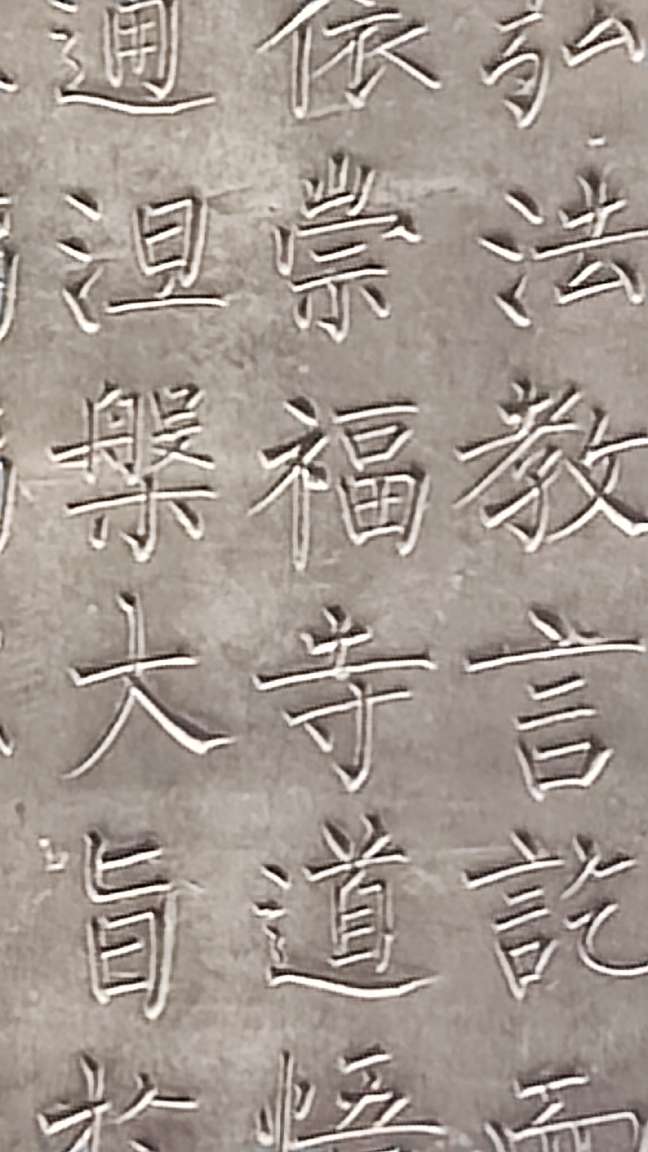 弘法教言訖而
依崇福寺道悟
通涅槃大旨於